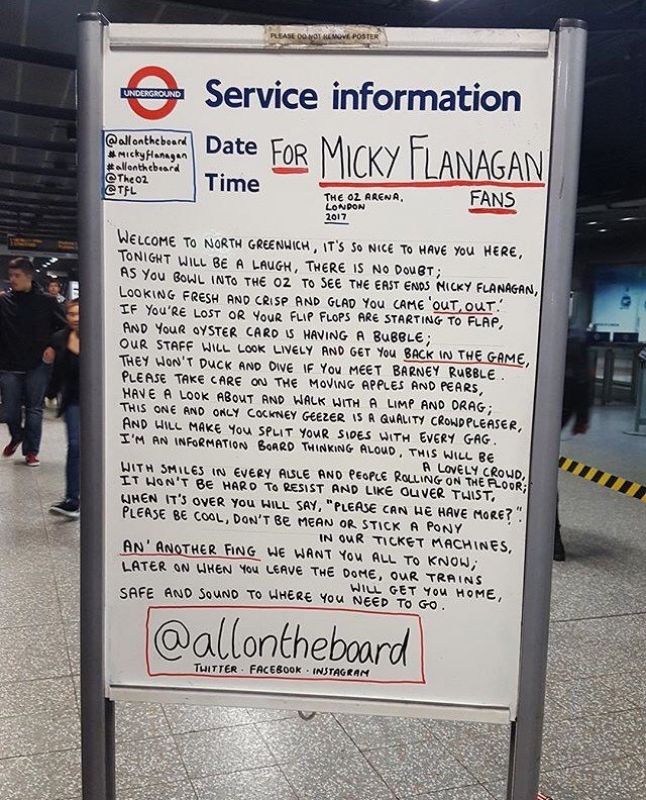 PLEASE DO NOT REMOVE POSTER
UNDERGROUND
Service information
@allontheboard
# mickyflanagan
#allontheboard
@TheO2
@TfL
Date
Time
FOR MICKY FLANAGAN
FANS
THE O2 ARENA,
LONDON
2017
WELCOME TO NORTH GREENWICH, IT'S SO NICE TO HAVE YOU HERE,
TONIGHT WILL BE A LAUGH, THERE IS NO DOUBT;
AS YOU BOWL INTO THE O2 TO SEE THE EAST ENDS MICKY FLANAGAN,
LOOKING FRESH AND CRISP AND GLAD YOU CAME 'OUT, OUT.'
IF YOU'RE LOST OR YOUR FLIP FLOPS ARE STARTING TO FLAP,
AND YOUR OYSTER CARD IS HAVING A BUBBLE;
OUR STAFF WILL LOOK LIVELY AND GET YOU BACK IN THE GAME,
THEY WON'T DUCK AND DIVE IF YOU MEET BARNEY RUBBLE.
PLEASE TAKE CARE ON THE MOVING APPLES AND PEARS,
HAVE A LOOK ABOUT AND WALK WITH A LIMP AND DRAG;
THIS ONE AND ONLY COCKNEY GEEZER IS A QUALITY CROWDPLEASER,
AND WILL MAKE YOU SPLIT YOUR SIDES WITH EVERY GAG.
I'M AN INFORMATION BOARD THINKING ALOUD, THIS WILL BE
A LOVELY CROWD,
WITH SMILES IN EVERY AISLE AND PEOPLE ROLLING ON THE FLOOR;
IT WON'T BE HARD TO RESIST AND LIKE OLIVER TWIST,
WHEN IT'S OVER YOU WILL SAY, "PLEASE CAN WE HAVE MORE?".
PLEASE BE COOL, DON'T BE MEAN OR STICK A PONY
IN OUR TICKET MACHINES,
AN' ANOTHER FING WE WANT YOU ALL TO KNOW;
LATER ON WHEN YOU LEAVE THE DOME, OUR TRAINS
WILL GET YOU HOME,
SAFE AND SOUND TO WHERE YOU NEED TO GO.
@allontheboard
TWITTER · FACEBOOK · INSTAGRAM